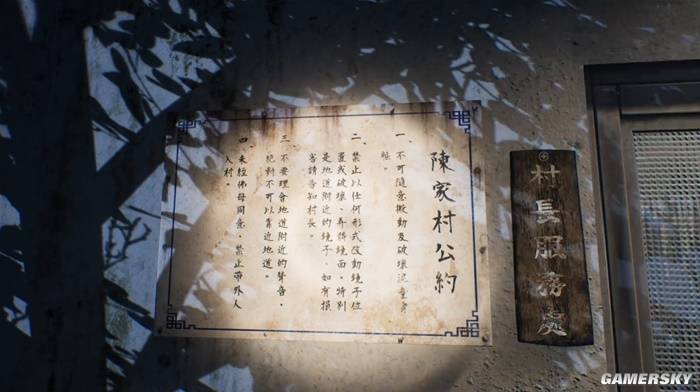 陳家村公約
一、不可隨意搬動及破壞流童身軀。
二、禁止以任何形式改動鏡子位
置或破壞、弄髒鏡面。特別
是地道附近的鏡子，如有損
害請告知村長。
三、不要理會地道附近的聲音，
絕對不可以靠近地道。
四、未經佛母同意，禁止帶外人
入村。
村長服務處
GAMERSKY